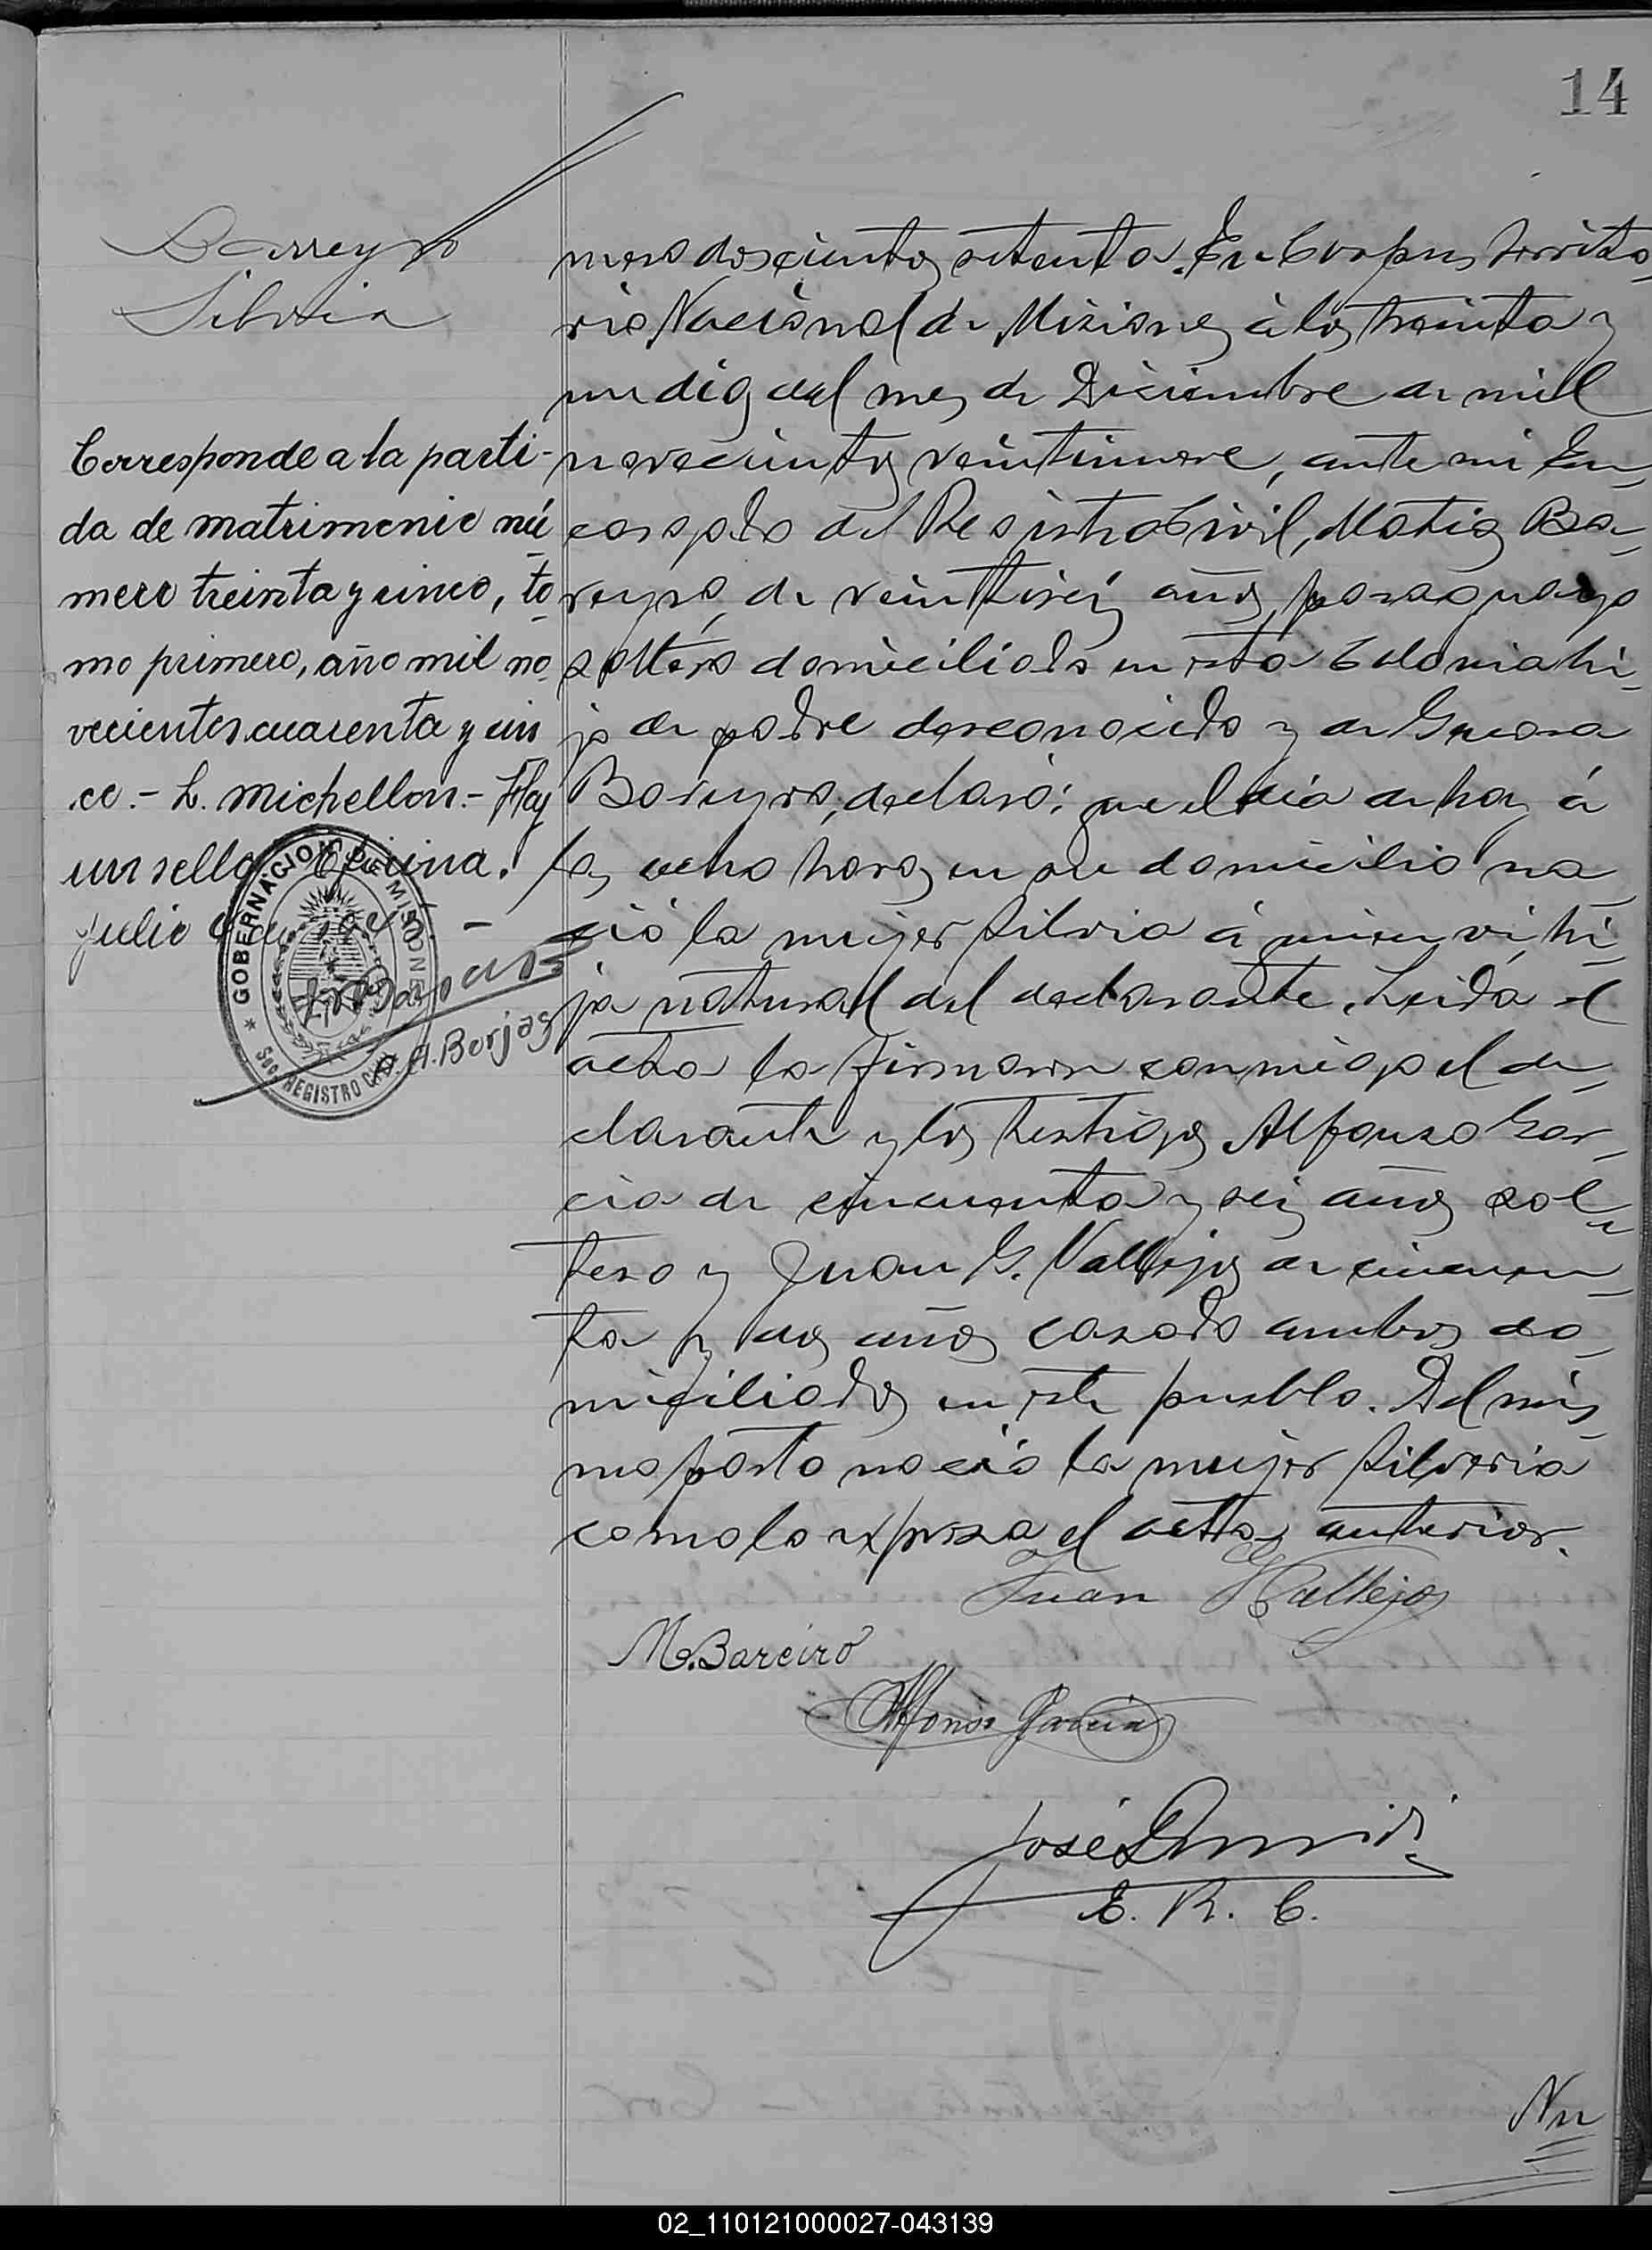 14
Barreyro
Silvia
Corresponde a la parti-
da de matrimonio nú
mero treinta y cinco, to
mo primero, año mil no
vecientos cuarenta y cin
co.- L. Michellon.- Hay
un sello
Julio
GOBERNACION DE MISIONES
Sec. REGISTRO CIVIL
A. Borjas
mero doscientos setenta. En Corpus, Territo-
rio Nacional de Misiones, á los treinta y
un dias del mes de Diciembre de mil
novecientos veintinueve, ante mi En-
cargado del Registro Civil, Matias Ba-
reyro, de veintiseis años, paraguayo
soltero domiciliado en esta Colonia hi-
jo de padre desconocido y de
Bareyro, declaró: que el dia de hoy á
las ocho horas en su domicilio na-
ció la mujer Silvia á quien vi, hi-
ja natural del declarante. Leida el
acta la firmaron conmigo el de-
clarante y los testigos Alfonso Gar-
cia de cincuenta y seis años sol-
tero y Juan G. Vallejos de cincuen-
ta y dos años casado ambos do-
miciliados en este pueblo. Del mis-
mo parto nació la mujer Silveria
como lo expresa el acta anterior.
Juan G Vallejos
M. Bareiro
Alfonso Garcia
José
E. R. C.
Nu
02_110121000027-043139